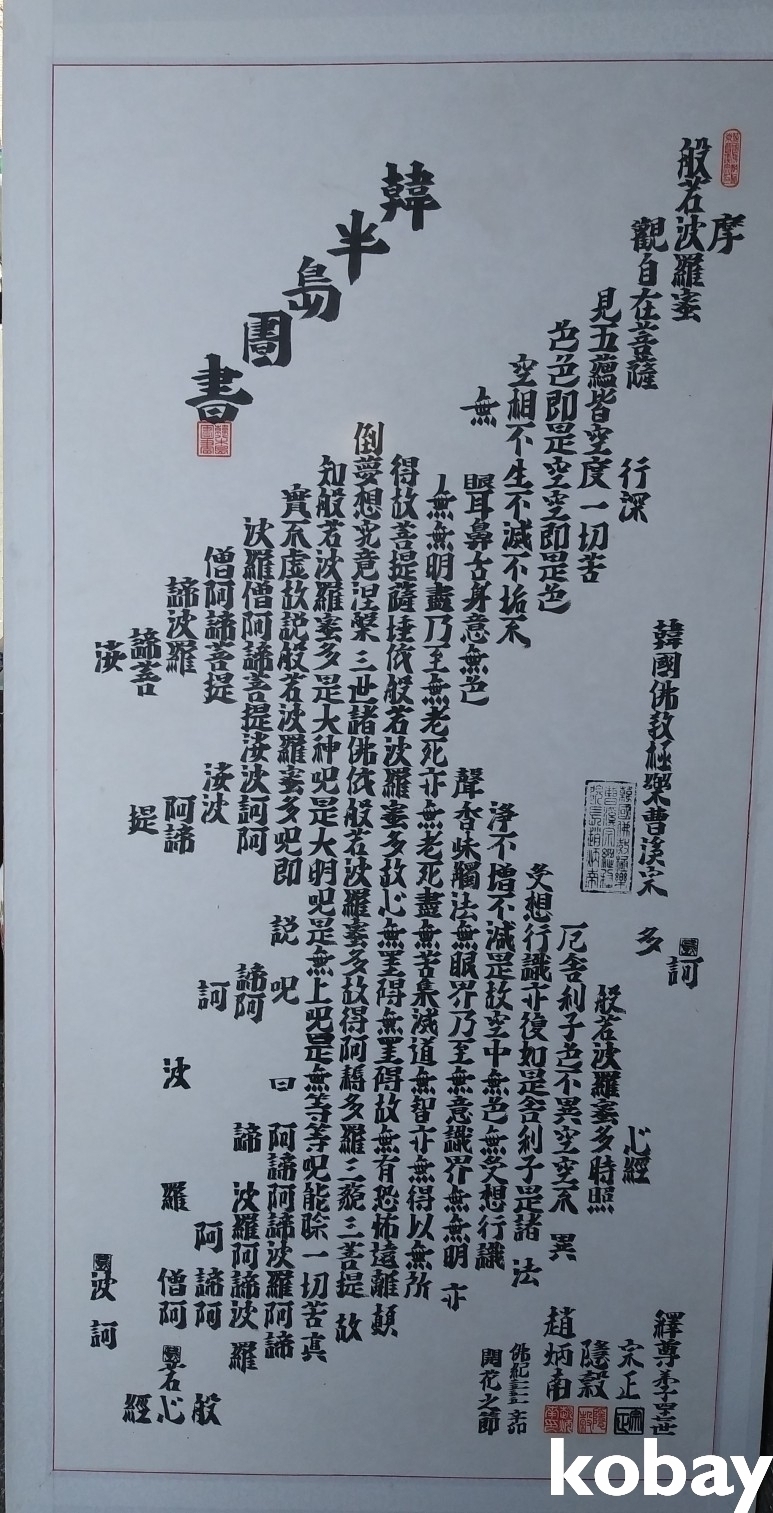 韓半島圖書
摩
訶
般若波羅蜜
多
心經
觀自在菩薩
行深
般若波羅蜜多時照
見五蘊皆空度一切苦
厄舍利子色不異空空不異
色色即是空空即是色
受想行識亦復如是舍利子是諸法
空相不生不滅不垢不
淨不增不減是故空中無色無受想行識
無
眼耳鼻舌身意無色
聲香味觸法無眼界乃至無意識界無無明亦
無無明盡乃至無老死亦無老死盡無苦集滅道無智亦無得以無所
得故菩提薩埵依般若波羅蜜多故心無罣碍無罣碍故無有恐怖遠離顚
倒夢想究竟涅槃三世諸佛依般若波羅蜜多故得阿耨多羅三藐三菩提故
知般若波羅蜜多是大神呪是大明呪是無上呪是無等等呪能除一切苦眞
實不虛故説般若波羅蜜多呪即
説呪曰
阿諦阿諦波羅阿諦
波羅僧阿諦菩提娑波訶阿
諦阿
諦
波羅阿諦波羅
僧阿諦菩提
娑波
訶
阿
諦阿
諦波羅
阿諦
波
羅
僧阿
諦菩
提
娑
波訶
般若心經
韓國佛教極樂曹溪宗
宗正
隱穀
趙炳南
開花之節
kobay